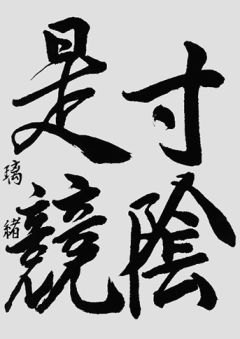 寸陰
是競
璃緒